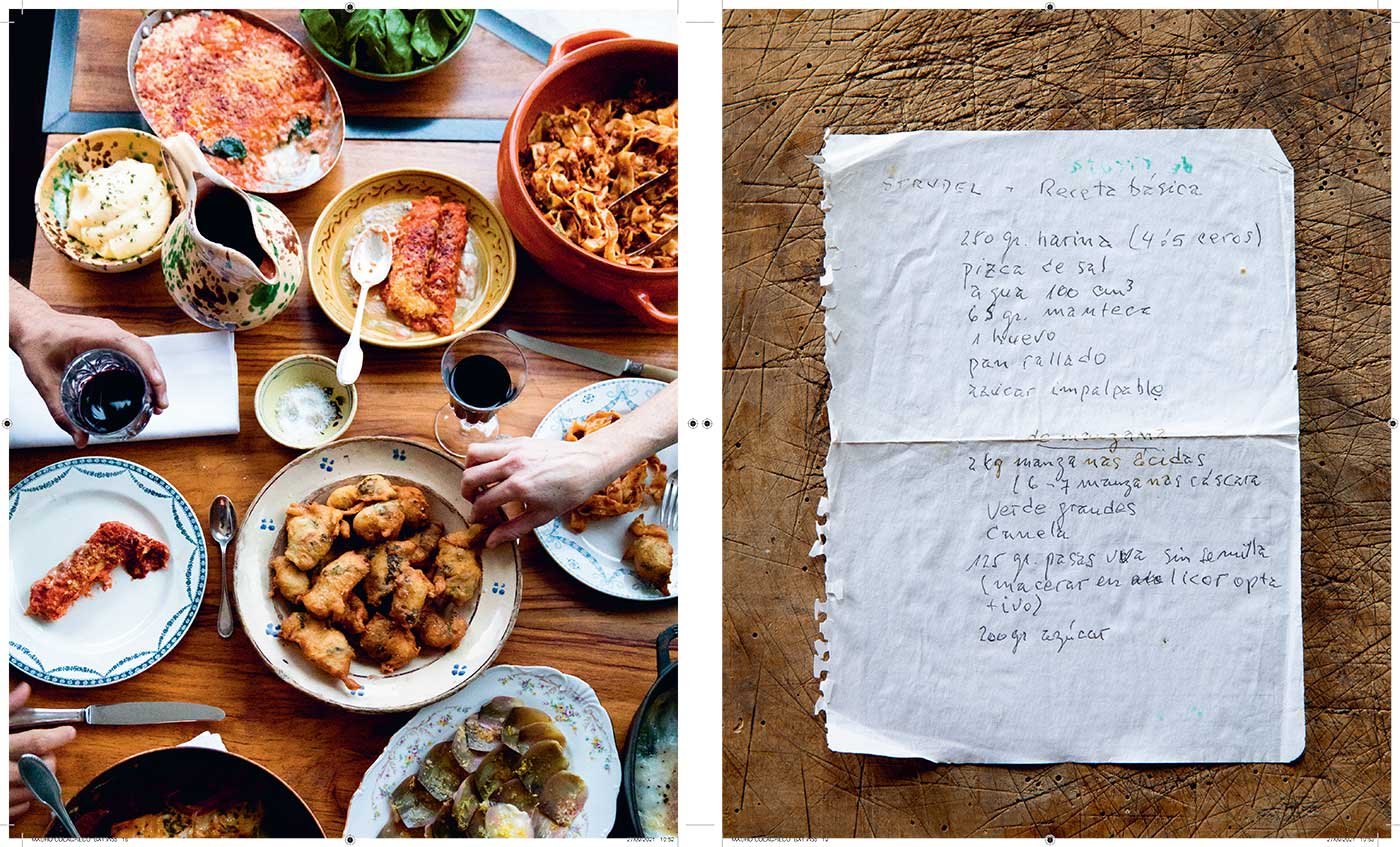 STRUDEL - Receta básica
250 gr. harina (4 ó 5 ceros)
pizca de sal
agua 100 cm³
65 gr. manteca
1 huevo
pan rallado
azúcar impalpable
de manzana
2 kg manzanas ácidas
(6-7 manzanas cáscara
verde grandes
canela
125 gr. pasas uva sin semilla
(macerar en licor opta
tivo)
200 gr azúcar
27/09/2021 10:52